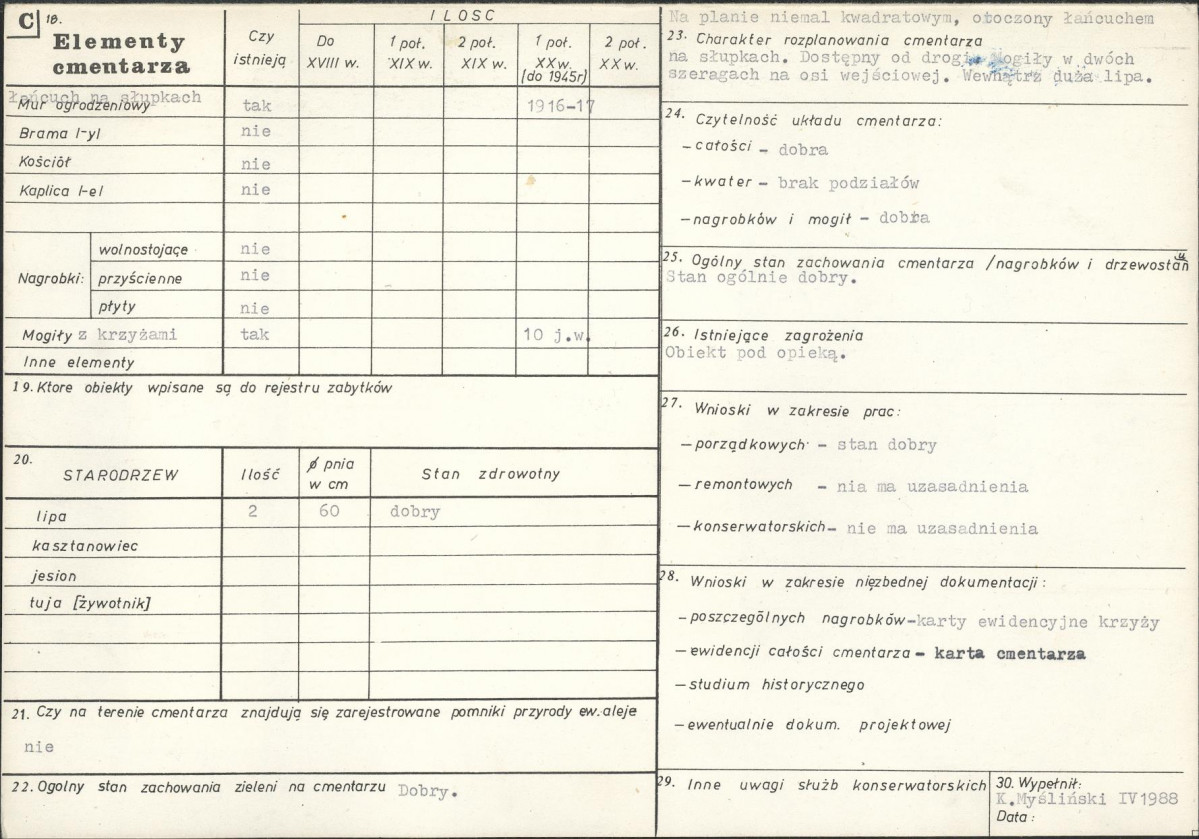 C 18.
Elementy
cmentarza
Czy
istnieją
ILOSC
Do
XVIII w.
1 poł.
XIX w.
2 poł.
XIX w.
1 poł.
XX w.
(do 1945r)
2 poł.
XX w.
łańcuch na słupkach
Mur ogrodzeniowy tak 1916-17
Brama /-y/ nie
Kościół nie
Kaplica /-e/ nie
Nagrobki:
wolnostojące nie
przyścienne nie
płyty nie
Mogiły z krzyżami tak 10 j.w.
Inne elementy
19. Ktore obiekty wpisane są do rejestru zabytków
20.
STARODRZEW Ilość ø pnia
w cm Stan zdrowotny
lipa 2 60 dobry
kasztanowiec
jesion
tuja [żywotnik]
21. Czy na terenie cmentarza znajdują się zarejestrowane pomniki przyrody ew. aleje
nie
22. Ogolny stan zachowania zieleni na cmentarzu Dobry.
Na planie niemal kwadratowym, otoczony łańcuchem
23. Charakter rozplanowania cmentarza
na słupkach. Dostępny od drogi. Mogiły w dwóch
szeragach na osi wejściowej. Wewnątrz duża lipa.
24. Czytelność układu cmentarza:
- całości - dobra
- kwater - brak podziałów
- nagrobków i mogił - dobra
25. Ogólny stan zachowania cmentarza /nagrobków i drzewostanu
Stan ogólnie dobry.
26. Istniejące zagrożenia
Obiekt pod opieką.
27. Wnioski w zakresie prac:
- porządkowych - stan dobry
- remontowych - nia ma uzasadnienia
- konserwatorskich - nie ma uzasadnienia
28. Wnioski w zakresie nięzbednej dokumentacji:
- poszczególnych nagrobków - karty ewidencyjne krzyży
- ewidencji całości cmentarza - karta cmentarza
- studium historycznego
- ewentualnie dokum. projektowej
29. Inne uwagi służb konserwatorskich
30. Wypełnił:
K.Myśliński IV 1988
Data: